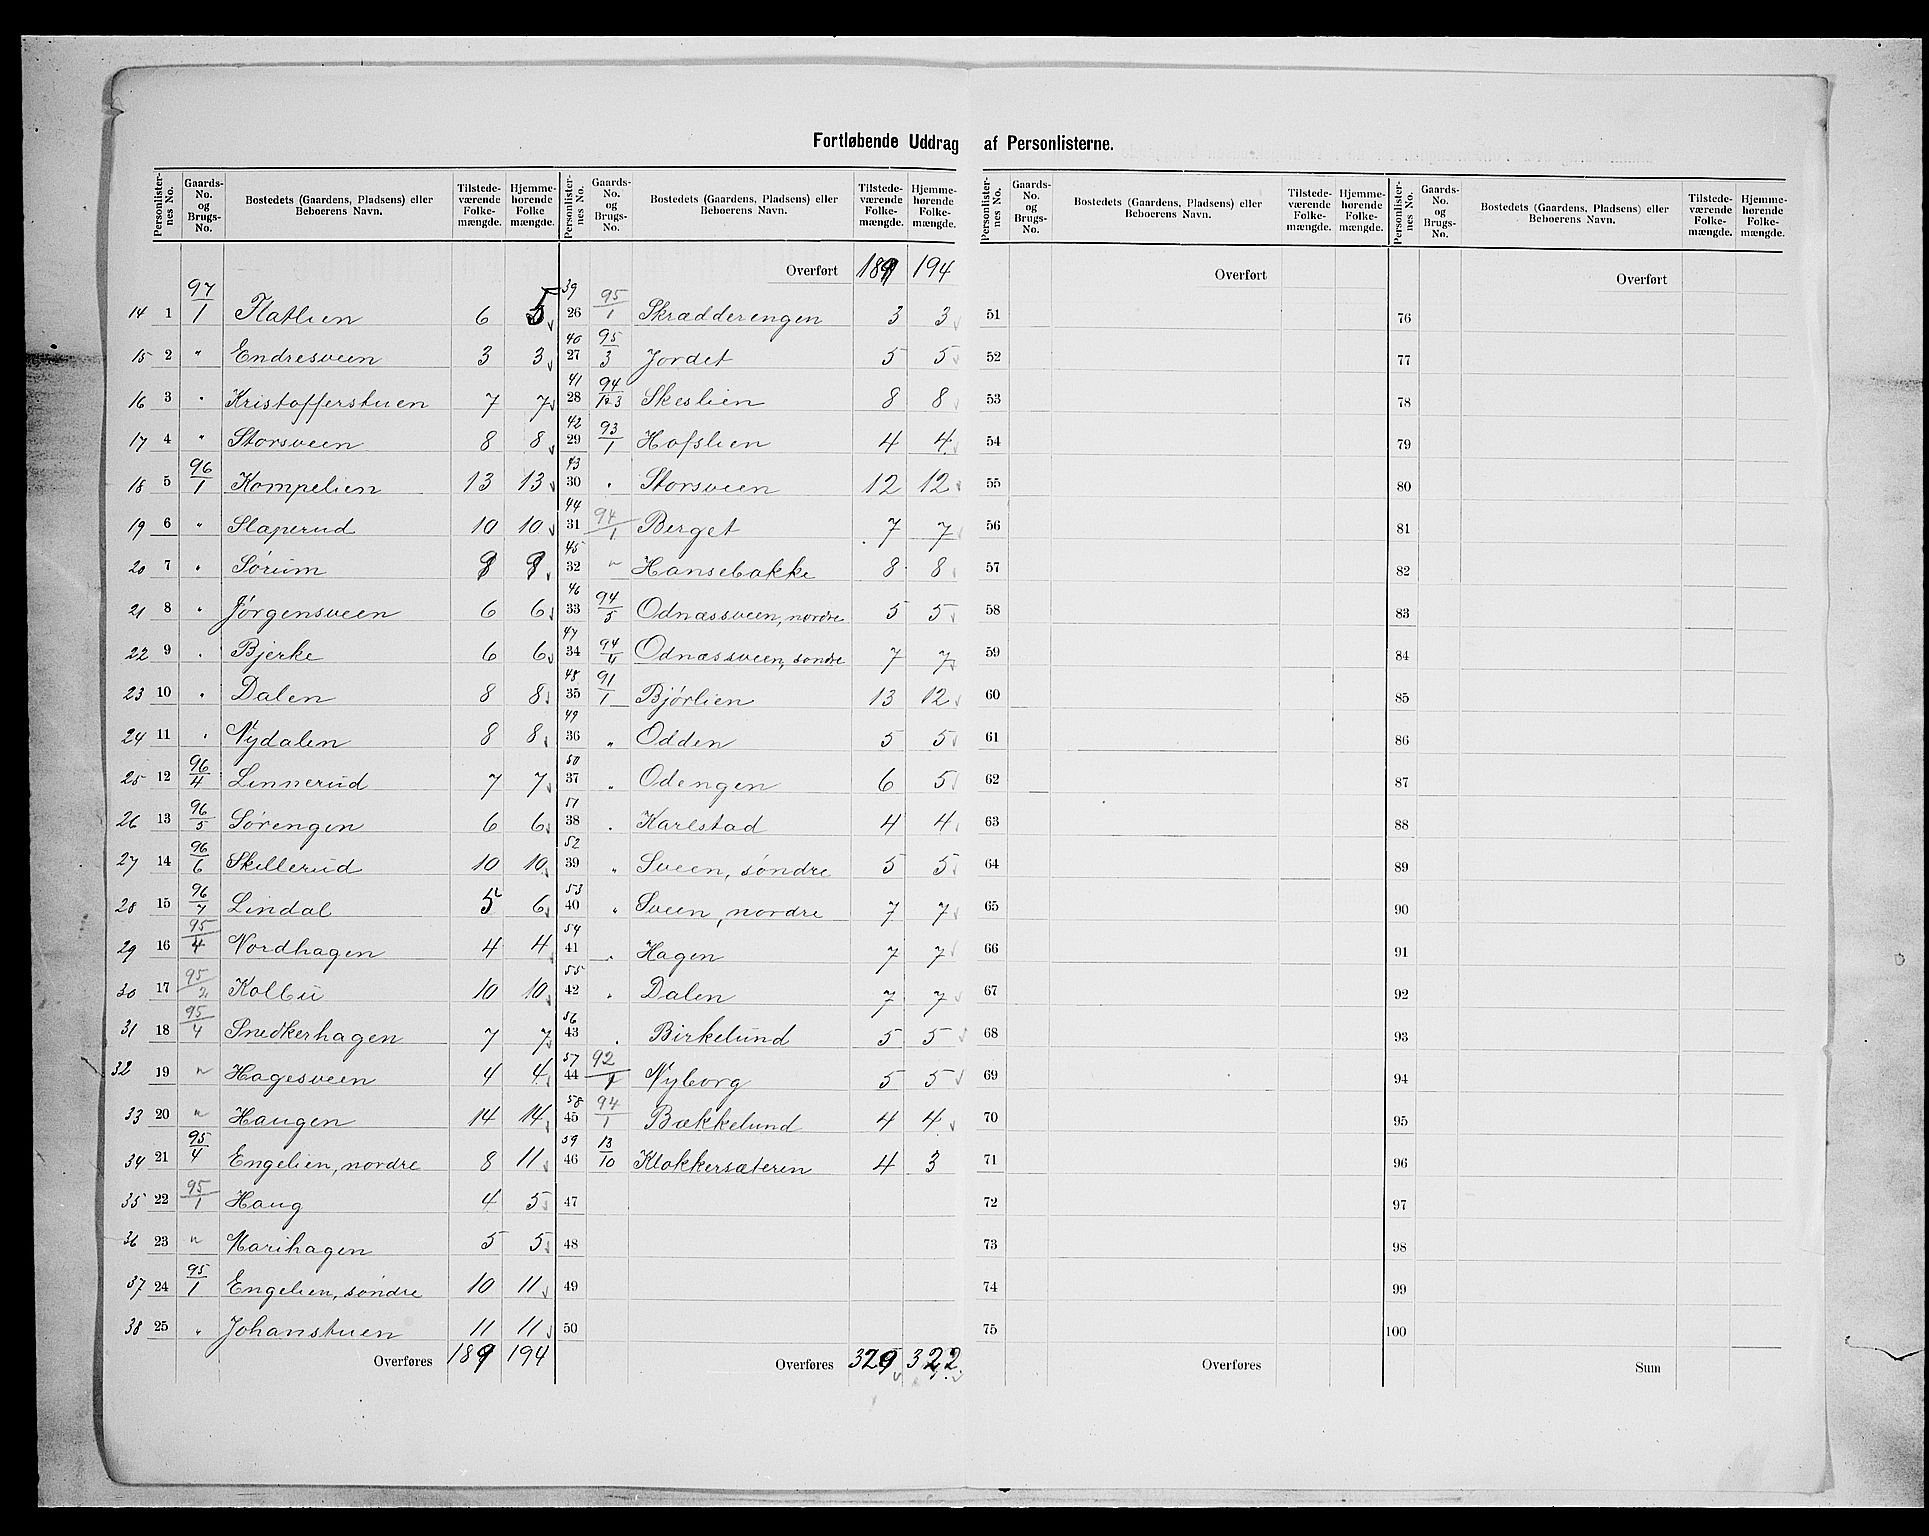 Fortløbende Uddrag af Personlisterne.
Personlisternes No. | Gaards-No. og Brugs-No. | Bostedets (Gaardens, Pladsens) eller Beboerens Navn. | Tilstedeværende Folkemængde. | Hjemmehørende Folkemængde.
14 1 97/1 Flatlien 6 5
15 2 " Endresveen 3 3
16 3 " Kristofferstuen 7 7
17 4 " Storsveen 8 8
18 5 96/1 Kompelien 13 13
19 6 " Slaperud 10 10
20 7 " Sørum
21 8 " Jørgensveen 6 6
22 9 " Bjerke 6 6
23 10 " Dalen 8 8
24 11 " Nydalen 8 8
25 12 96/4 Linnerud 7 7
26 13 96/5 Sørengen 6 6
27 14 96/6 Skillerud 10 10
28 15 96/7 Lindal 5 6
29 16 95/4 Nordhagen 4 4
30 17 95/2 Kolbu 10 10
31 18 95/4 Snedkerhagen 7 7
32 19 " Hagesveen 4 4
33 20 " Haugen 14 14
34 21 95/4 Engelien, nordre 8 11
35 22 95/1 Haug 4 5
36 23 " Marihagen 5 5
37 24 95/1 Engelien, søndre 10 11
38 25 " Johanstuen 11 11
Overføres 189 194
Personlisternes No. | Gaards-No. og Brugs-No. | Bostedets (Gaardens, Pladsens) eller Beboerens Navn. | Tilstedeværende Folkemængde. | Hjemmehørende Folkemængde.
Overført 189 194
39 26 95/1 Skrædderengen 3 3
40 27 95/3 Jordet 5 5
41 28 94 Skeslien 8 8
42 29 93/1 Hofslien 4 4
43 30 " Storsveen 12 12
44 31 94/1 Berget 7 7
45 32 " Hansebakke 8 8
46 33 94/5 Odnæssveen, nordre 5 5
47 34 94/4 Odnæssveen, søndre 7 7
48 35 91/1 Bjørlien 13 12
49 36 " Odden 5 5
50 37 " Odengen 6 5
51 38 " Karlstad 4 4
52 39 " Sveen, søndre 5 5
53 40 " Sveen, nordre 7 7
54 41 " Hagen 7 7
55 42 " Dalen 7 7
56 43 " Birkelund 5 5
57 44 92/1 Nyborg 5 5
58 45 94/1 Bækkelund 4 4
59 46 13/10 Klokkersæteren 4 3
47
48
49
50
Overføres 329 322
Personlisternes No. | Gaards-No. og Brugs-No. | Bostedets (Gaardens, Pladsens) eller Beboerens Navn. | Tilstedeværende Folkemængde. | Hjemmehørende Folkemængde.
Overført
51
52
53
54
55
56
57
58
59
60
61
62
63
64
65
66
67
68
69
70
71
72
73
74
75
Overføres
Personlisternes No. | Gaards-No. og Brugs-No. | Bostedets (Gaardens, Pladsens) eller Beboerens Navn. | Tilstedeværende Folkemængde. | Hjemmehørende Folkemængde.
Overført
76
77
78
79
80
81
82
83
84
85
86
87
88
89
90
91
92
93
94
95
96
97
98
99
100
Sum